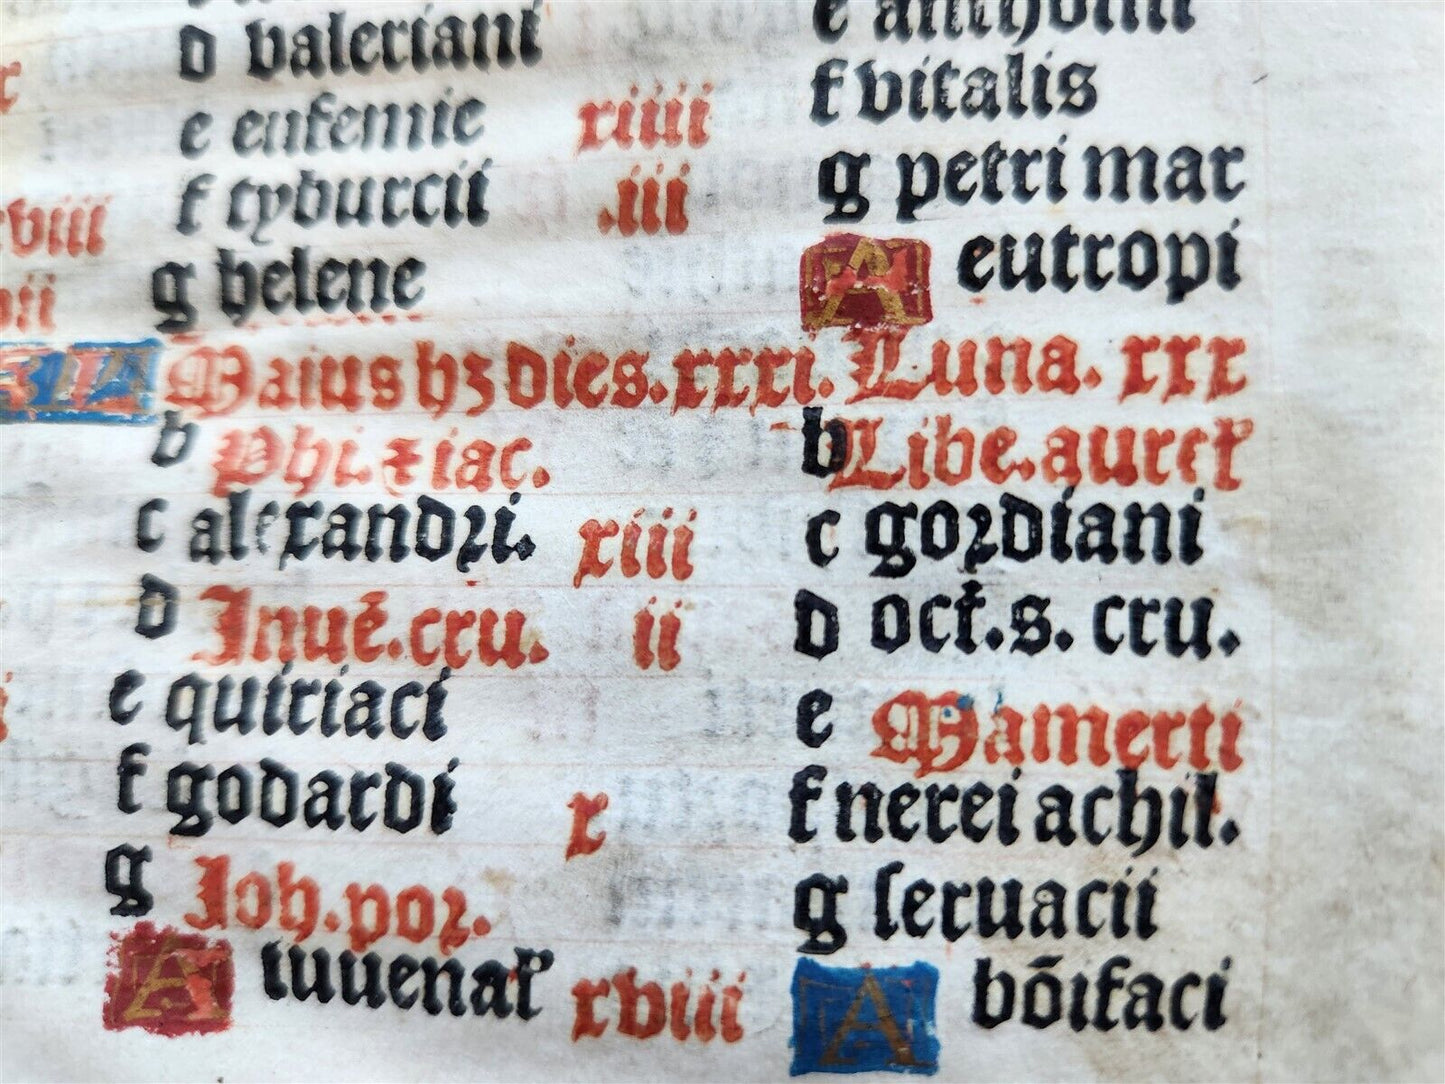 d valeriani
e eufemie
f tyburcii
g helene
viii
KL Maius hꝫ dies. xxxi. Luna. xxx
b Phi. ⁊ iac.
c alexandri.
d Inuē. cru.
e quiriaci
f godardi
g Joh. por.
A iuuenaꝉ
xiiii f vitalis
.iii g petri mar
A eutropi
b Libe. aureꝉ
xiii c gordiani
ii d oct. s. cru.
e Mamerti
x f nerei achil.
g seruacii
xviii A bōifaci